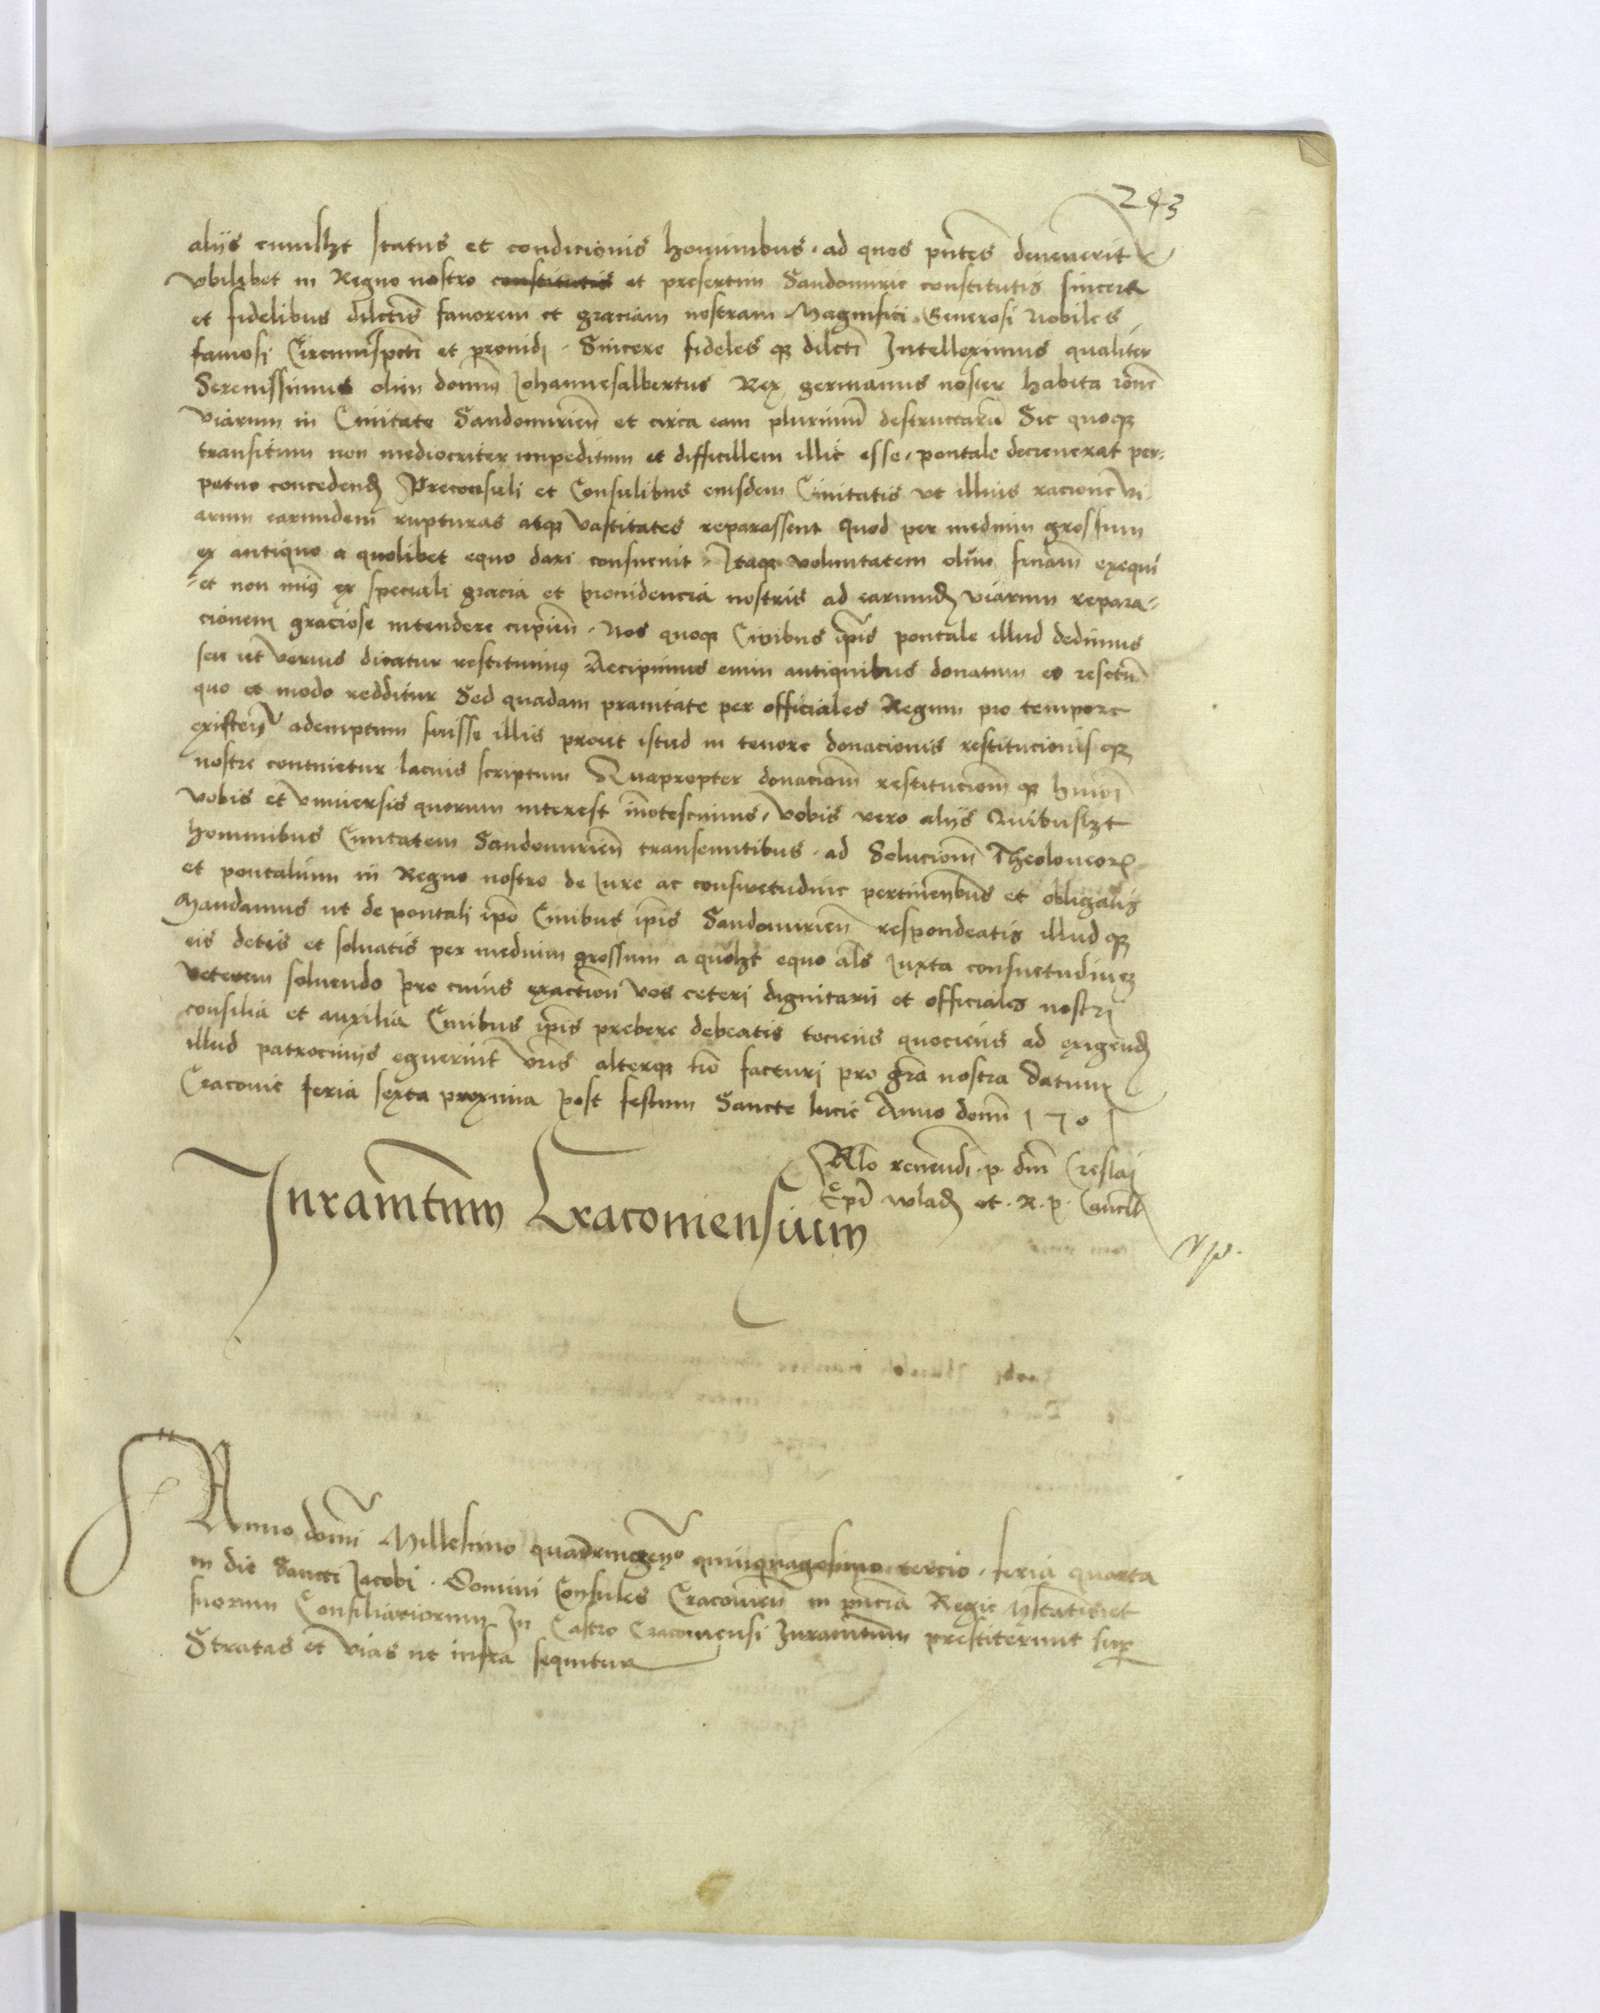 243
aliis cuiuslzt status et condicionis hominibus . ad quos pntes devenerit
vbilzbet in Regno nostro constitutis et presertim Sandomirie constitutis sincere
et fidelibus dilctis favorem et graciam nostram Magnifici Generosi Nobiles
famosi Circumspcti et providi . Sincere fideles qz dilcti Intelleximus qualiter
Serenissimus olim domns Johannesalbertus Rex germanus noster habita rone
viarum in Civitate Sandomirien et circa eam plurimum destructaru Sic quoqz
transitum non mediocriter impeditum et difficillem illic esse, pontale decreverat per-
petuo concedend Preconsuli et Consulibus eiusdem Civitatis vt illius racione vi
arum earundem rupturas atqz vastitates reparassent quod per medium grossum
ex antiquo a quolibet equo dari consuevit . Itaqz voluntatem olim suam exequi
et non min9 ex speciali gracia et providencia nostris ad earumd viarum repara-
cionem graciose intendere cupien . Nos quoqz Civibus ipis pontale illud dedimus
seu ut verius dicatur restituim9 Accipimus enim antiquibus donatum et
quo et modo redditur Sed quadam pravitate per officiales Regum pro tempore
existen ademptum fuisse illis prout istud in tenore donacionis restitucionis qz
nostre continetur lacius scriptum Quapropter donaciom restituciom qz hmoi
vobis et vniversis quorum interest inotescimus, vobis vero aliis Quibuslzt
hominibus Civitatem Sandomirien transeuntibus . ad Soluciom Theoloneor
et pontalium in Regno nostro de Iure ac consuetudine pertinenbus et obligatis
Mandamus ut de pontali ipo Civibus ipis Sandomirien respondeatis illud qz
eis detis et solvatis per medium grossum a quolzt equo als Iuxta consuetudinez
veterem solvendo pro cuius exaction vos ceteri dignitarii et officiales nostri
consilia et auxilia Civibus ipis prebere debeatis tociens quociens ad exigend
illud patrociniis eguerint vris alterqz no facturi pro gra nostra Datum
Cracovie feria sexta proxima post festum Sancte lucie Anno domi 1501
Rlo revendi . p . dni Creslai
Epi wlad et . R . p . Cancell
Iuramtum Cracoviensium
Anno domi Millesimo quadringen9o quinquagesimo tercio . feria quarta
in die Sancti Jacobi . Domini Consules Cracovien in pncia Regie Mtatis et
suorum Consiliariorum In Castro Cracoviensi Iuramtum prestiterunt sup
Stratas et vias ut infra sequitur